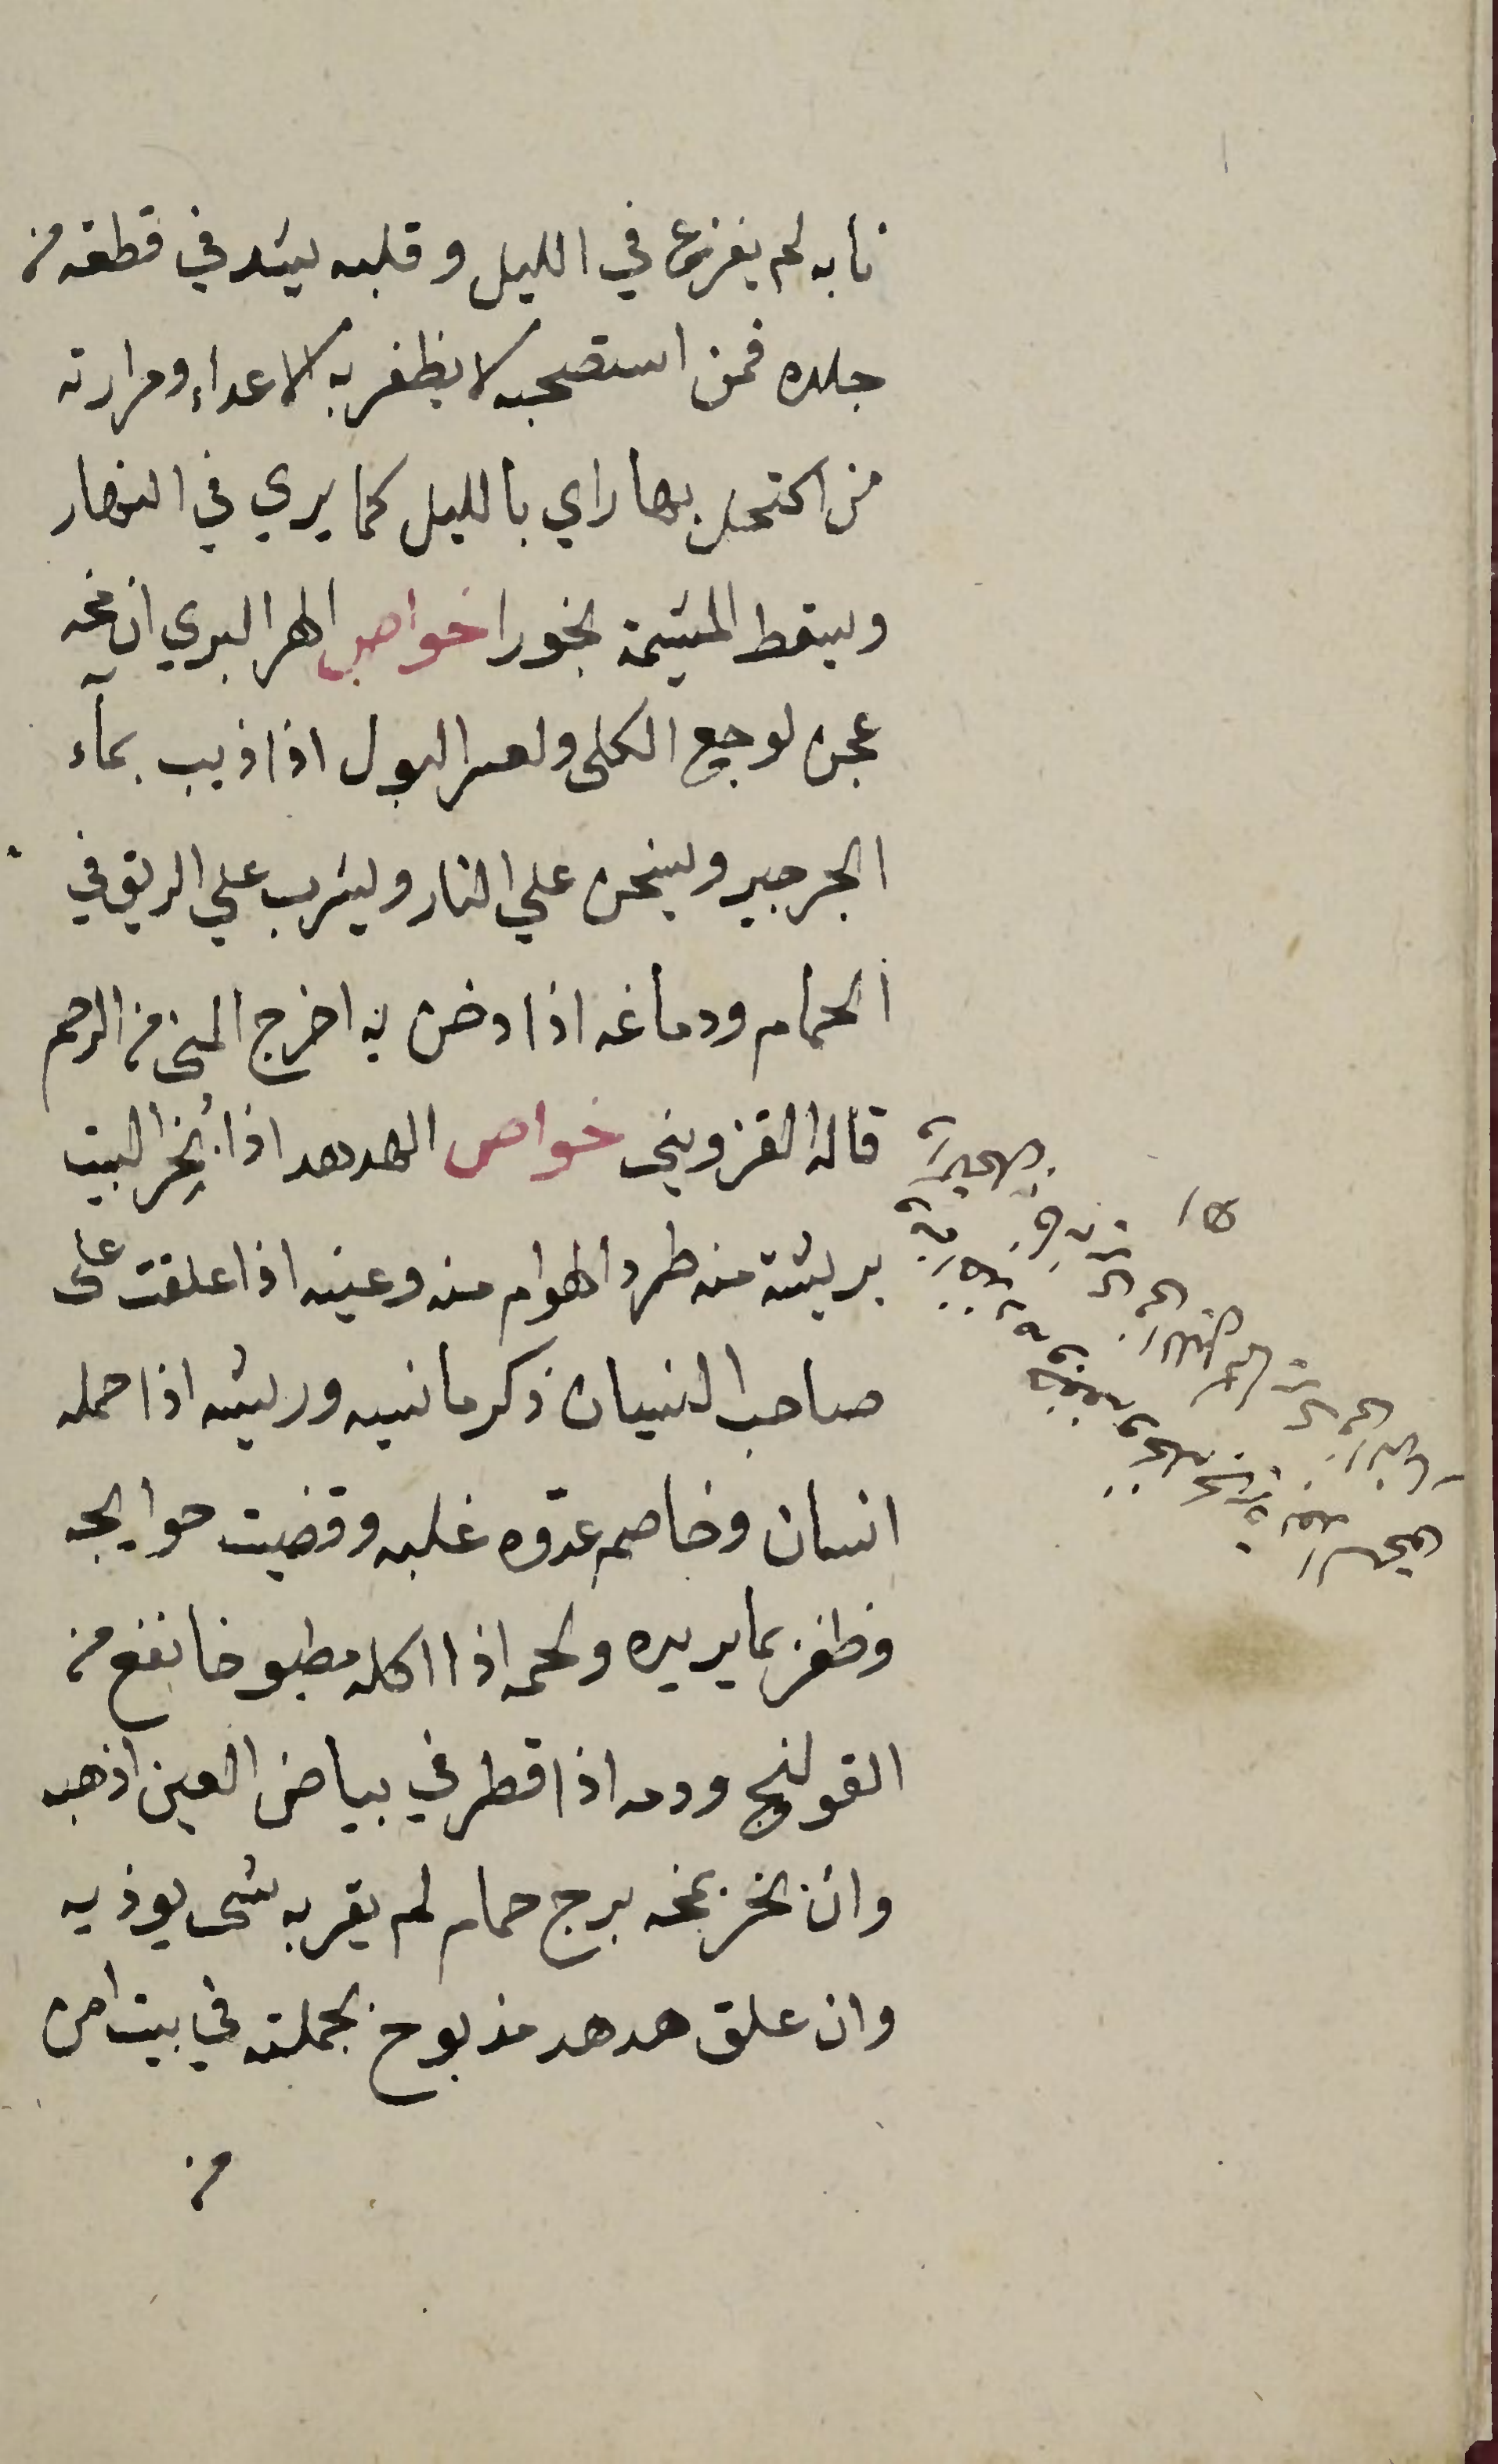 نابه لم يفزع في الليل وقلبه يشد في قطعه من
جلده فمن استصحبه لا يظفر به الاعداء ومرارته
من اكتحل بها راي بالليل كما يري في النهار
ويسقط المشيمة بخورا خواص الهر البري ان مخه
عجن لوجع الكلى ولعسر البول اذا اذيب بمآء
الجرجير ويسخن علي النار ويشرب علي الريق في
الحمام ودماغه اذا دخن به اخرج المنى من الرحم
قاله القزويني خواص الهدهد اذا بُخِر البيت
بريشة منه طرد الهوام منه وعينه اذا علقت على
صاحب النسيان ذكر ما نسيه وريشه اذا حمله
انسان وخاصم عدوه غلبه وقضيت حوايجه
وظفر بما يريده ولحمه اذا اكله مطبوخا نفع من
القولنج ودمه اذا قطر في بياض العين اذهبه
وان بخر بمخه برج حمام لم يقربه شى يوذيه
وان علق هدهد مذبوح بجملته في بيت امن
من